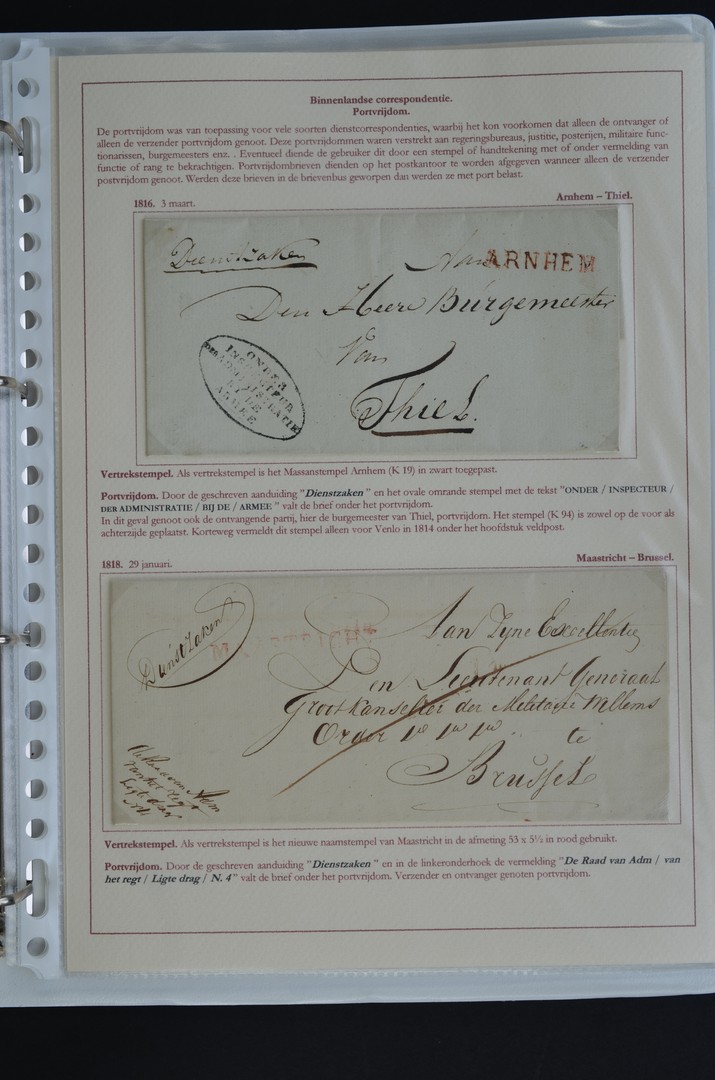 Binnenlandse correspondentie.
Portvrijdom.
De portvrijdom was van toepassing voor vele soorten dienstcorrespondenties, waarbij het kon voorkomen dat alleen de ontvanger of
alleen de verzender portvrijdom genoot. Deze portvrijdommen waren verstrekt aan regeringsbureaus, justitie, posterijen, militaire func-
tionarissen, burgemeesters enz. . Eventueel diende de gebruiker dit door een stempel of handtekening met of onder vermelding van
functie of rang te bekrachtigen. Portvrijdombrieven dienden op het postkantoor te worden afgegeven wanneer alleen de verzender
postvrijdom genoot. Werden deze brieven in de brievenbus geworpen dan werden ze met port belast.
1816. 3 maart.
Arnhem – Thiel.
Dienstzaken
Aan ARNHEM
Den Heere Burgemeester
Van
Thiel.
ONDER
INSPECTEUR
DER ADMINISTRATIE
BIJ DE
ARMEE
Vertrekstempel. Als vertrekstempel is het Massanstempel Arnhem (K 19) in zwart toegepast.
Portvrijdom. Door de geschreven aanduiding "Dienstzaken" en het ovale omrande stempel met de tekst "ONDER / INSPECTEUR /
DER ADMINISTRATIE / BIJ DE / ARMEE " valt de brief onder het portvrijdom.
In dit geval genoot ook de ontvangende partij, hier de burgemeester van Thiel, portvrijdom. Het stempel (K 94) is zowel op de voor als
achterzijde geplaatst. Korteweg vermeldt dit stempel alleen voor Venlo in 1814 onder het hoofdstuk veldpost.
1818. 29 januari.
Maastricht – Brussel.
Dienstzaken
MAASTRICHT
Aan Zyne Excellentie
Den Lieutenant Generaal
Grootkanselier der Militaire Willems
Order
te
Brussel
De Raad van Adm
van het regt
Ligte drag
N 4
Vertrekstempel. Als vertrekstempel is het nieuwe naamstempel van Maastricht in de afmeting 53 x 5½ in rood gebruikt.
Portvrijdom. Door de geschreven aanduiding "Dienstzaken " en in de linkeronderhoek de vermelding "De Raad van Adm / van
het regt / Ligte drag / N. 4" valt de brief onder het portvrijdom. Verzender en ontvanger genoten portvrijdom.